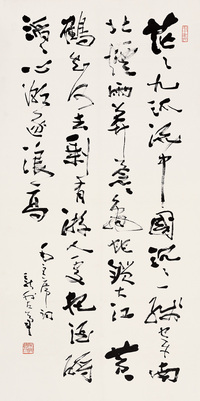 茫々九派流中國沉々一线穿南
北煙雨莽蒼々龜蛇鎖大江黄
鶴知何去剩有游人處把酒酹
滔々心潮逐浪高
毛主席詞